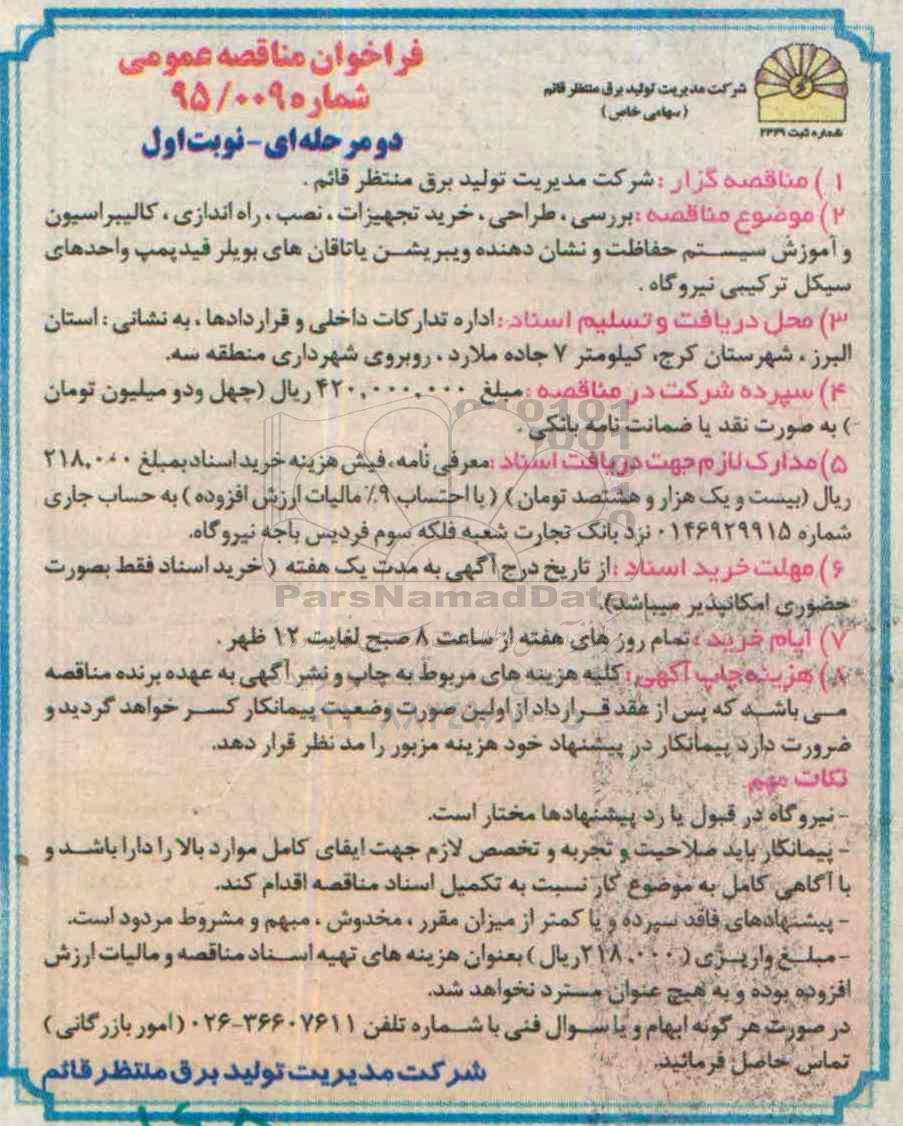 فراخوان مناقصه عمومی
شماره ۹۵/۰۰۹
دو مرحله‌ای - نوبت اول
شرکت مدیریت تولید برق منتظر قائم
(سهامی خاص)
شماره ثبت ۲۳۳۹
۱) مناقصه گزار : شرکت مدیریت تولید برق منتظر قائم .
۲) موضوع مناقصه : بررسی ، طراحی ، خرید تجهیزات ، نصب ، راه اندازی ، کالیبراسیون
و آموزش سیستم حفاظت و نشان دهنده ویبریشن یاتاقان های بویلر فیدپمپ واحدهای
سیکل ترکیبی نیروگاه .
۳) محل دریافت و تسلیم اسناد : اداره تدارکات داخلی و قراردادها ، به نشانی : استان
البرز ، شهرستان کرج، کیلومتر ۷ جاده ملارد ، روبروی شهرداری منطقه سه.
۴) سپرده شرکت در مناقصه : مبلغ ۴۲۰,۰۰۰,۰۰۰ ریال (چهل ودو میلیون تومان
) به صورت نقد یا ضمانت نامه بانکی .
۵) مدارک لازم جهت دریافت اسناد : معرفی نامه ، فیش هزینه خرید اسناد بمبلغ ۲۱۸,۰۰۰
ریال (بیست و یک هزار و هشتصد تومان) ( با احتساب ۹٪ مالیات ارزش افزوده ) به حساب جاری
شماره ۰۱۴۶۹۲۹۹۱۵ نزد بانک تجارت شعبه فلکه سوم فردیس باجه نیروگاه.
۶) مهلت خرید اسناد : از تاریخ درج آگهی به مدت یک هفته ( خرید اسناد فقط بصورت
حضوری امکانپذیر میباشد).
ParsNamadData
۷) ایام خرید : تمام روز های هفته از ساعت ۸ صبح لغایت ۱۲ ظهر .
۸) هزینه چاپ آگهی : کلیه هزینه های مربوط به چاپ و نشر آگهی به عهده برنده مناقصه
می باشد که پس از عقد قرارداد از اولین صورت وضعیت پیمانکار کسر خواهد گردید و
ضرورت دارد پیمانکار در پیشنهاد خود هزینه مزبور را مد نظر قرار دهد.
نکات مهم
- نیروگاه در قبول یا رد پیشنهادها مختار است.
- پیمانکار باید صلاحیت و تجربه و تخصص لازم جهت ایفای کامل موارد بالا را دارا باشد و
با آگاهی کامل به موضوع کار نسبت به تکمیل اسناد مناقصه اقدام کند.
- پیشنهادهای فاقد سپرده و یا کمتر از میزان مقرر ، مخدوش ، مبهم و مشروط مردود است.
- مبلغ واریزی ( ۲۱۸,۰۰۰ ریال ) بعنوان هزینه های تهیه اسناد مناقصه و مالیات ارزش
افزوده بوده و به هیچ عنوان مسترد نخواهد شد.
در صورت هر گونه ابهام و یا سوال فنی با شماره تلفن ۳۶۶۰۷۶۱۱-۰۲۶ ( امور بازرگانی )
تماس حاصل فرمائید.
شرکت مدیریت تولید برق منتظر قائم